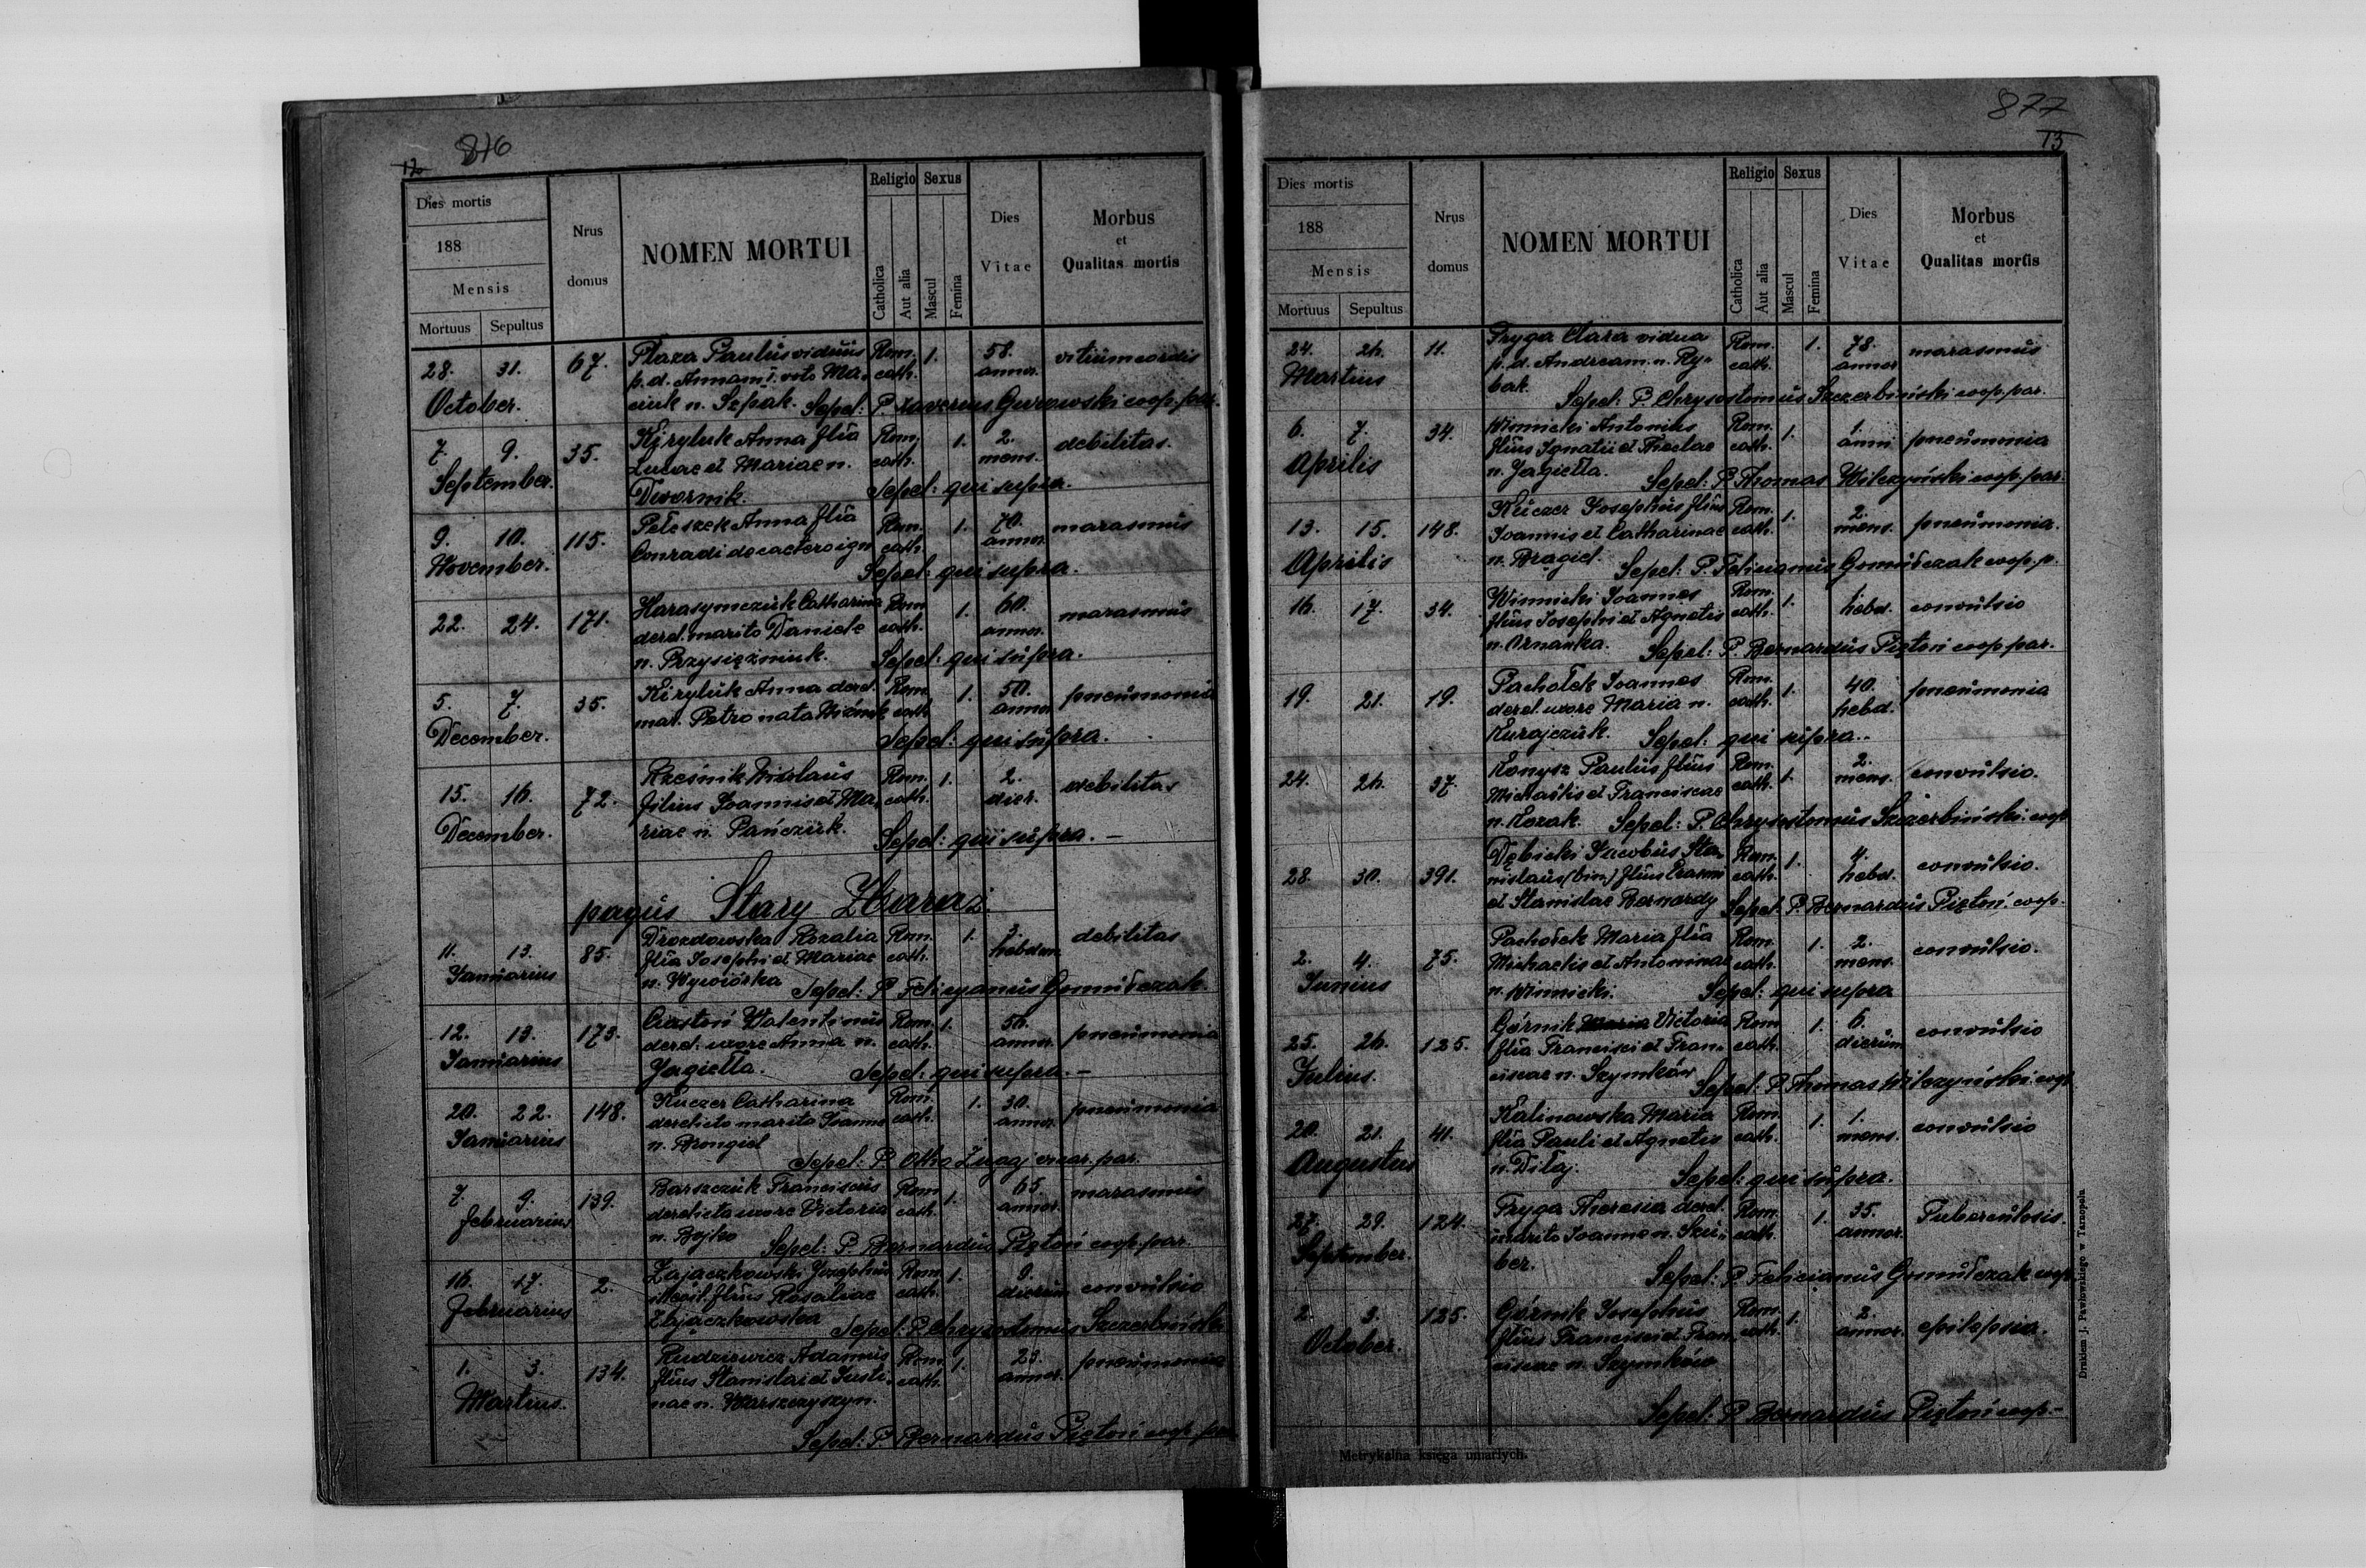 12 816
Dies mortis
188
Mensis
Mortuus Sepultus
Nrus
domus
NOMEN MORTUI
Religio Sexus
Catholica
Aut alia
Mascul
Femina
Dies
Vitae
Morbus
et
Qualitas mortis
28. 31. 67. Plaza Paulus viduus Rom. 1. 58. vitium cordis
October. p. d. Annam I. voto Ma- cath. annor.
ciuk n. Szpak. Sepel: P. Xaverius Gurowski coop. par.
7. 9. 35. Kiryluk Anna flia Rom. 1. 2. debilitas.
September. Lucae et Mariae n. cath. mens.
Dwornik. Sepel: qui supra.
9. 10. 115. Peleszek Anna flia Rom. 1. 70. marasmus
November. Conradi de caetero ign cath. annor.
Sepel: qui supra.
22. 24. 171. Harasymczuk Catharina Rom. 1. 60. marasmus
derel. marito Daniele cath. annor.
n. Przysiężniuk. Sepel: qui supra.
5. 7. 35. Kiryluk Anna derel. Rom. 1. 50. pneumonia
December. mar. Petro nata cath. annor.
Sepel: qui supra.
15. 16. 72. Rzeźnik Nicolaus Rom. 1. 2. debilitas
December. filius Ioannis et Ma- cath. dier.
riae n. Pańczuk. Sepel: qui supra. —
pagus Stary Zbaraż.
11. 13. 85. Drozdowska Rozalia Rom. 1. 3. debilitas
Januarius flia Josephi et Mariae cath. hebdom.
n. Wywiórka Sepel: P. Felicyanus Gomułczak
12. 13. 173. Valentinus Rom. 1. 56. pneumonia
Januarius derel. uxore Anna n. cath. annor.
Jagiełła. Sepel: qui supra. —
20. 22. 148. Kuczer Catharina Rom. 1. 30. pneumonia
Januarius derelicto marito Ioanne cath. annor.
n. Brongiel Sepel: P. Otho vicar. par.
7. 9. 139. Barszczuk Franciscus Rom. 1. 65. marasmus
Februarius derelicta uxore Victoria cath. annor.
n. Bojko Sepel: P. Bernardus Piętoń coop. par.
16. 17. 2. Zajączkowski Josephus Rom. 1. 9. convulsio
Februarius illegit. flius Rosaliae cath. dierum
Zajączkowska Sepel: P. Chrysostomus Szczerbiński
1. 3. 134. Rudziewicz Adamus Rom. 1. 23. pneumonia
Martius. flius Stanislai et Justi- cath. annor.
nae n. Warszczyszyn.
Sepel: P. Bernardus Piętoń coop. par
877
13
Dies mortis
188
Mensis
Mortuus Sepultus
Nrus
domus
NOMEN MORTUI
Religio Sexus
Catholica
Aut alia
Mascul
Femina
Dies
Vitae
Morbus
et
Qualitas mortis
24. 26. 11. Fryga Clara vidua Rom. 1. 78. marasmus
Martius p. d. Andream n. Ry- cath. annor
bak. Sepel: P. Chrysostomus Szczerbiński coop. par.
6. 7. 34. Winnicki Antonius Rom. 1. 1. pneumonia
Aprilis flius Ignatii et Theclae cath. anni
n. Jagiełła. Sepel: P. Thomas Wilczyński coop. par.
13. 15. 148. Kuczer Josephus flius Rom. 1. 2. pneumonia.
Aprilis Ioannis et Catharinae cath. mens.
n. Bragiel. Sepel: P. Felicianus Gomułczak coop. p.
16. 17. 34. Winnicki Ioannes Rom. 1. 1. convulsio
flius Josephi et Agnetis cath. hebd.
n. Ornanka. Sepel: P. Bernardus Piętoń coop. par.
19. 21. 19. Pachołek Ioannes Rom. 1. 40. pneumonia
derel. uxore Maria n. cath. hebd.
Kurajczuk. Sepel: qui supra.
24. 26. 37. Konysz Paulus flius Rom. 1. 2. convulsio.
Michaëlis et Franciscae cath. mens.
n. Kozak. Sepel: P. Chrysostomus Szczerbiński. coop
28. 30. 391. Dębicki Jacobus Sta- Rom. 1. 4. convulsio.
nislaus (bin.) flius Erasmi cath. hebd.
et Stanislae Bernardy Sepel: P. Bernardus Piętoń. coop.
2. 4. 75. Pachołek Maria flia Rom. 1. 2. convulsio.
Junius Michaelis et Antoninae cath. mens.
n. Winnicki. Sepel: qui supra
25. 26. 125. Górnik Maria Victoria Rom. 1. 6. convulsio
Julius. flia Francisci et Fran- cath. dierum
ciscae n. Szymków Sepel: P. Thomas Wilczyński coop
20. 21. 41. Kalinowska Maria Rom. 1. 1. convulsio
Augustus flia Pauli et Agnetis cath. mens.
n. Diłaj. Sepel: qui supra.
27. 29. 124. Fryga Theresia derel. Rom. 1. 35. Tuberculosis.
September. marito Ioanne n. Szu- cath. annor.
ber. Sepel: P. Felicianus Gomułczak coop
2. 3. 125. Górnik Josephus Rom. 1. 2. epilepsia.
October. flius Francisci et Fran- cath. annor.
ciscae n. Szymków
Sepel: P. Bernardus Piętoń coop.—
Metrykalna księga umarłych.
Drukiem J. Pawłowskiego w Tarnopolu